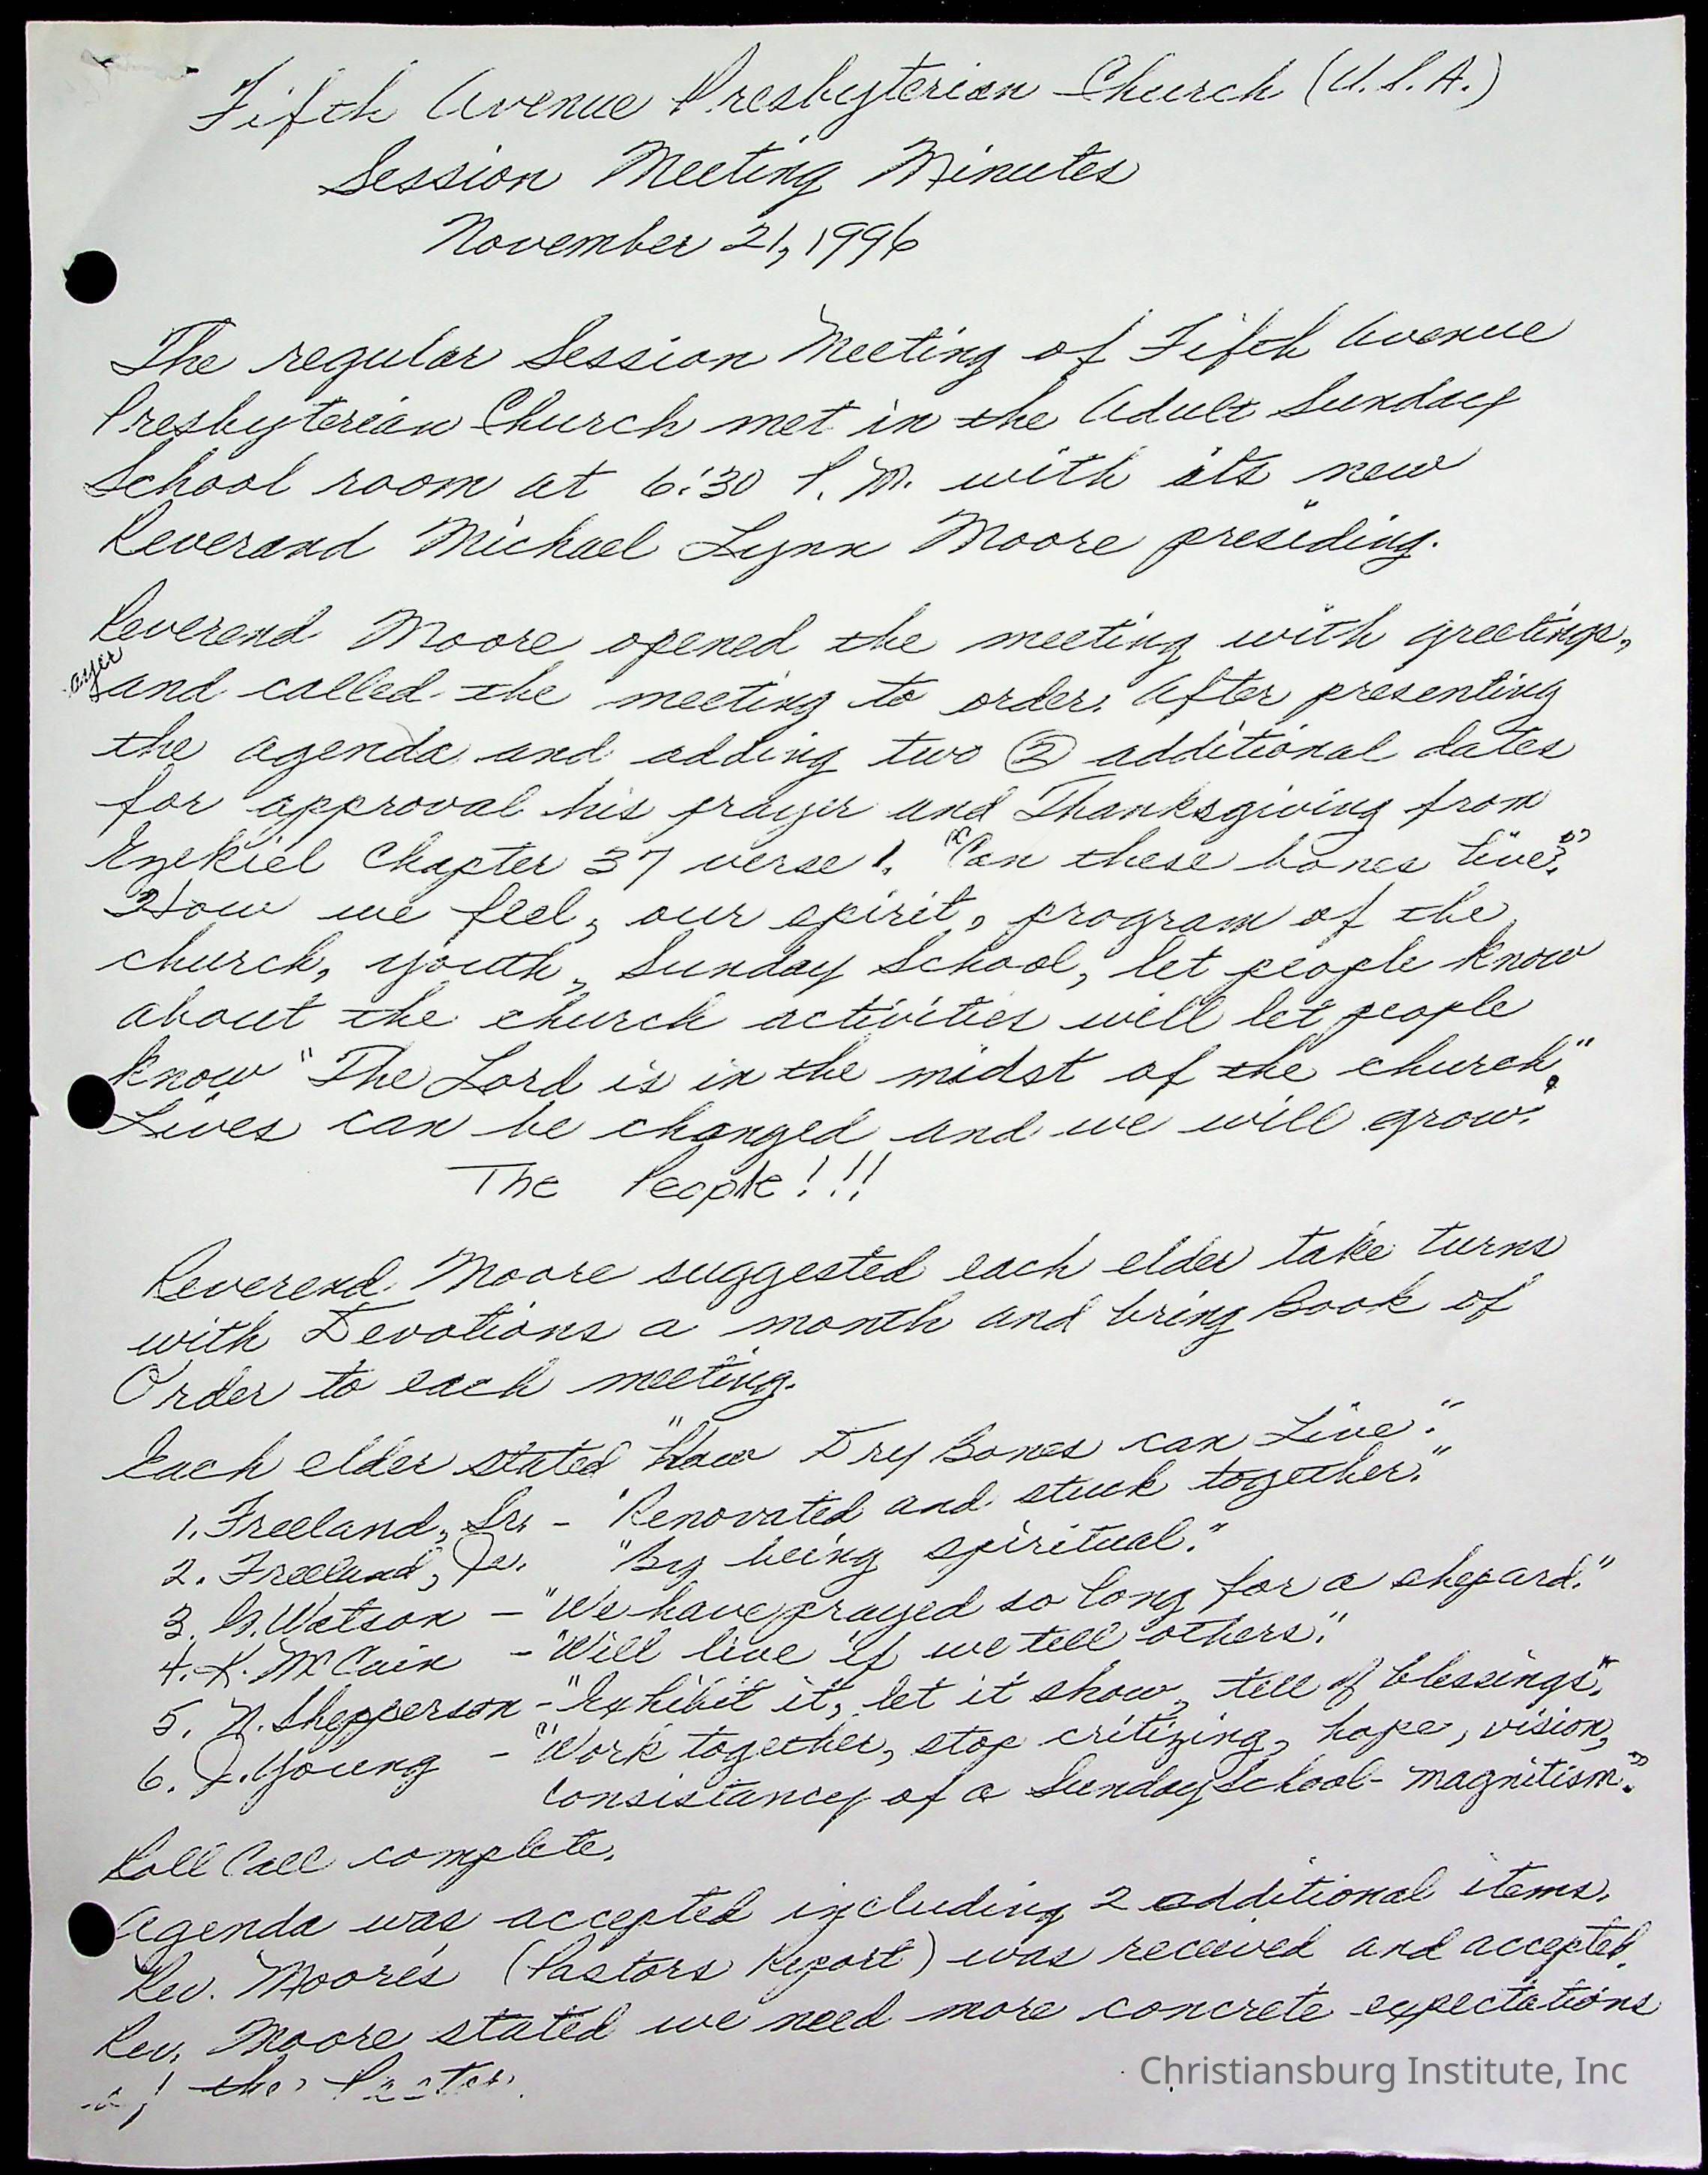 Fifth Avenue Presbyterian Church (U.S.A.)
Session Meeting Minutes
November 21, 1996
The regular Session Meeting of Fifth Avenue
Presbyterian Church met in the Adult Sunday
School room at 6:30 P.M. with its new
Reverand Michael Lynn Moore presiding.
Reverend Moore opened the meeting with greetings,
ayer
and called the meeting to order. After presenting
the agenda and adding two ② additional dates
for approval his prayer and Thanksgiving from
Ezekiel Chapter 37 verse 1. "Can these bones live?"
How we feel, our spirit, program of the
church, youth, Sunday School, let people know
about the church activities will let people
know "The Lord is in the midst of the church".
Lives can be changed and we will grow."
The People!!!
Reverend Moore suggested each elder take turns
with Devotions a month and bring Book of
Order to each meeting.
Each elder stated "How Dry Bones can Live".
1. Freeland, Sr. - "Renovated and stuck together."
2. Freeland, Jr. "By being spiritual."
3. Watson - "We have prayed so long for a shepard."
4. K. McCain - "Will live if we tell others."
5. N. Shepperson - "Exhibit it, let it show, tell of blessings".
6. J. Young - "Work together, stop critizing, hope, vision,
consistancy of a Sunday School - magnitism."
Roll Call complete.
Agenda was accepted including 2 additional items.
Rev. Moore's (Pastors Report) was received and accepted.
Rev. Moore stated we need more concrete expectations
of the Pastor.
Christiansburg Institute, Inc